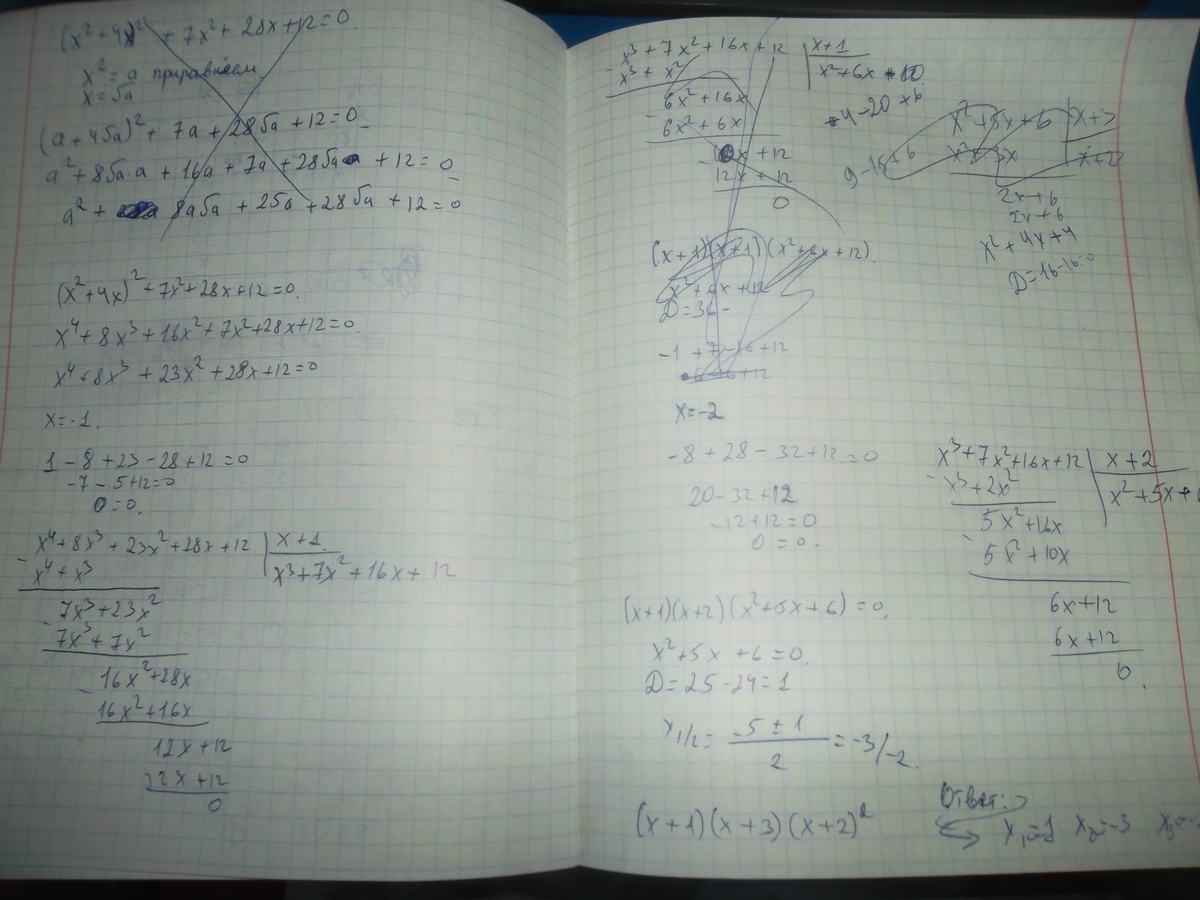 (x²+4x)² + 7x² + 28x + 12 = 0.
x² = a приравняем
x = √a
(a + 4√a)² + 7a + 28√a + 12 = 0
a² + 8√a·a + 16a + 7a + 28√a + 12 = 0
a² + 8a√a + 25a + 28√a + 12 = 0
(x²+4x)² + 7x² + 28x + 12 = 0.
x⁴ + 8x³ + 16x² + 7x² + 28x + 12 = 0.
x⁴ + 8x³ + 23x² + 28x + 12 = 0
x = -1.
1 - 8 + 23 - 28 + 12 = 0
-7 - 5 + 12 = 0
0 = 0.
x⁴ + 8x³ + 23x² + 28x + 12 | x + 1
x⁴ + x³ | x³ + 7x² + 16x + 12
7x³ + 23x²
7x³ + 7x²
16x² + 28x
16x² + 16x
12x + 12
12x + 12
0
x³ + 7x² + 16x + 12 | x + 1
x³ + x² | x² + 6x + 10
6x² + 16x
6x² + 6x
x + 12
12x + 12
0
4 - 20
x² + 5x + 6 | x + 3
x² + 3x | x + 2
9 - 15 + 6
2x + 6
2x + 6
x² + 4x + 4
D = 16 - 16 = 0
(x + 1)(x + 1)(x² + 6x + 12)
x² + 6x + 12
D = 36 -
-1 + 7 - 16 + 12
x = -2
-8 + 28 - 32 + 12 = 0
20 - 32 + 12
-12 + 12 = 0
0 = 0.
x³ + 7x² + 16x + 12 | x + 2
x³ + 2x² | x² + 5x +
5x² + 16x
5x² + 10x
6x + 12
6x + 12
0.
(x+1)(x+2)(x²+5x+6) = 0.
x² + 5x + 6 = 0.
D = 25 - 24 = 1
x₁/₂ = (-5 ± 1)/2 = -3/-2.
(x + 1)(x + 3)(x + 2)²
Ответ:
x₁=-1 x₂=-3 x₃=-